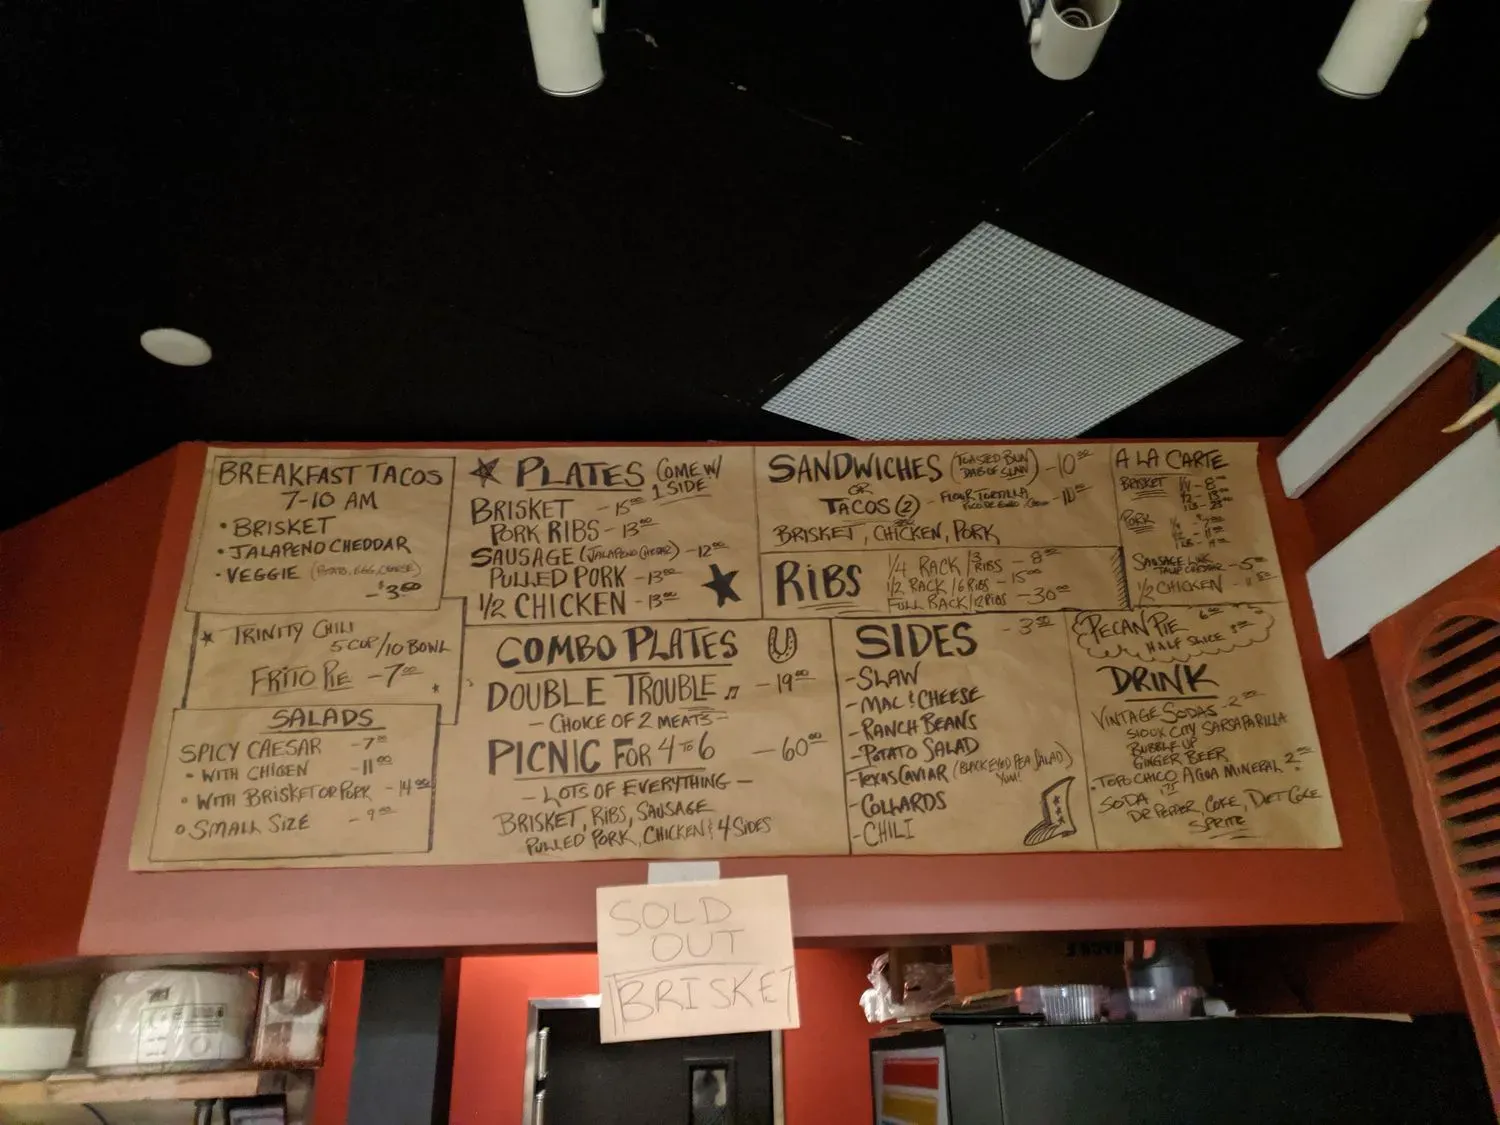 BREAKFAST TACOS
7-10 AM
• BRISKET
• JALAPENO CHEDDAR
• VEGGIE (POTATO, EGG, CHEESE)
- $3.50
TRINITY CHILI
5 CUP/10 BOWL
FRITO PIE - 7.00
SALADS
SPICY CAESAR - 7.00
• WITH CHICKEN - 11.00
• WITH BRISKET OR PORK - 14.00
SMALL SIZE
PLATES (COME W/
1 SIDE)
BRISKET - 15.00
PORK RIBS - 13.00
SAUSAGE (JALAPENO CHEDDAR) - 12.00
PULLED PORK - 13.00
1/2 CHICKEN - 13.00
COMBO PLATES
DOUBLE TROUBLE ♫ - 19.00
- CHOICE OF 2 MEATS -
PICNIC FOR 4 TO 6 - 60.00
- LOTS OF EVERYTHING -
BRISKET, RIBS, SAUSAGE
PULLED PORK, CHICKEN & 4 SIDES
SANDWICHES (TOASTED BUN
DAB OF SLAW) - 10.00
OR
TACOS (2) - FLOUR TORTILLA
PICO DE GALLO
BRISKET, CHICKEN, PORK
RIBS
1/4 RACK/3 RIBS - 8.00
1/2 RACK/6 RIBS - 15.00
FULL RACK/12 RIBS - 30.00
SIDES - 3.50
- SLAW
- MAC & CHEESE
- RANCH BEANS
- POTATO SALAD
- TEXAS CAVIAR (BLACK EYED PEA SALAD)
YUM!
- COLLARDS
- CHILI
A LA CARTE
BRISKET
PORK
SAUSAGE LINK
1/2 CHICKEN
PECAN PIE 6.00
HALF SLICE
DRINK
VINTAGE SODAS
SIOUX CITY SARSAPARILLA
BUBBLE UP
GINGER BEER
• TOPO CHICO AGUA MINERAL
SODA 1.75
DR PEPPER, COKE, DIET COKE
SPRITE
SOLD
OUT
BRISKET